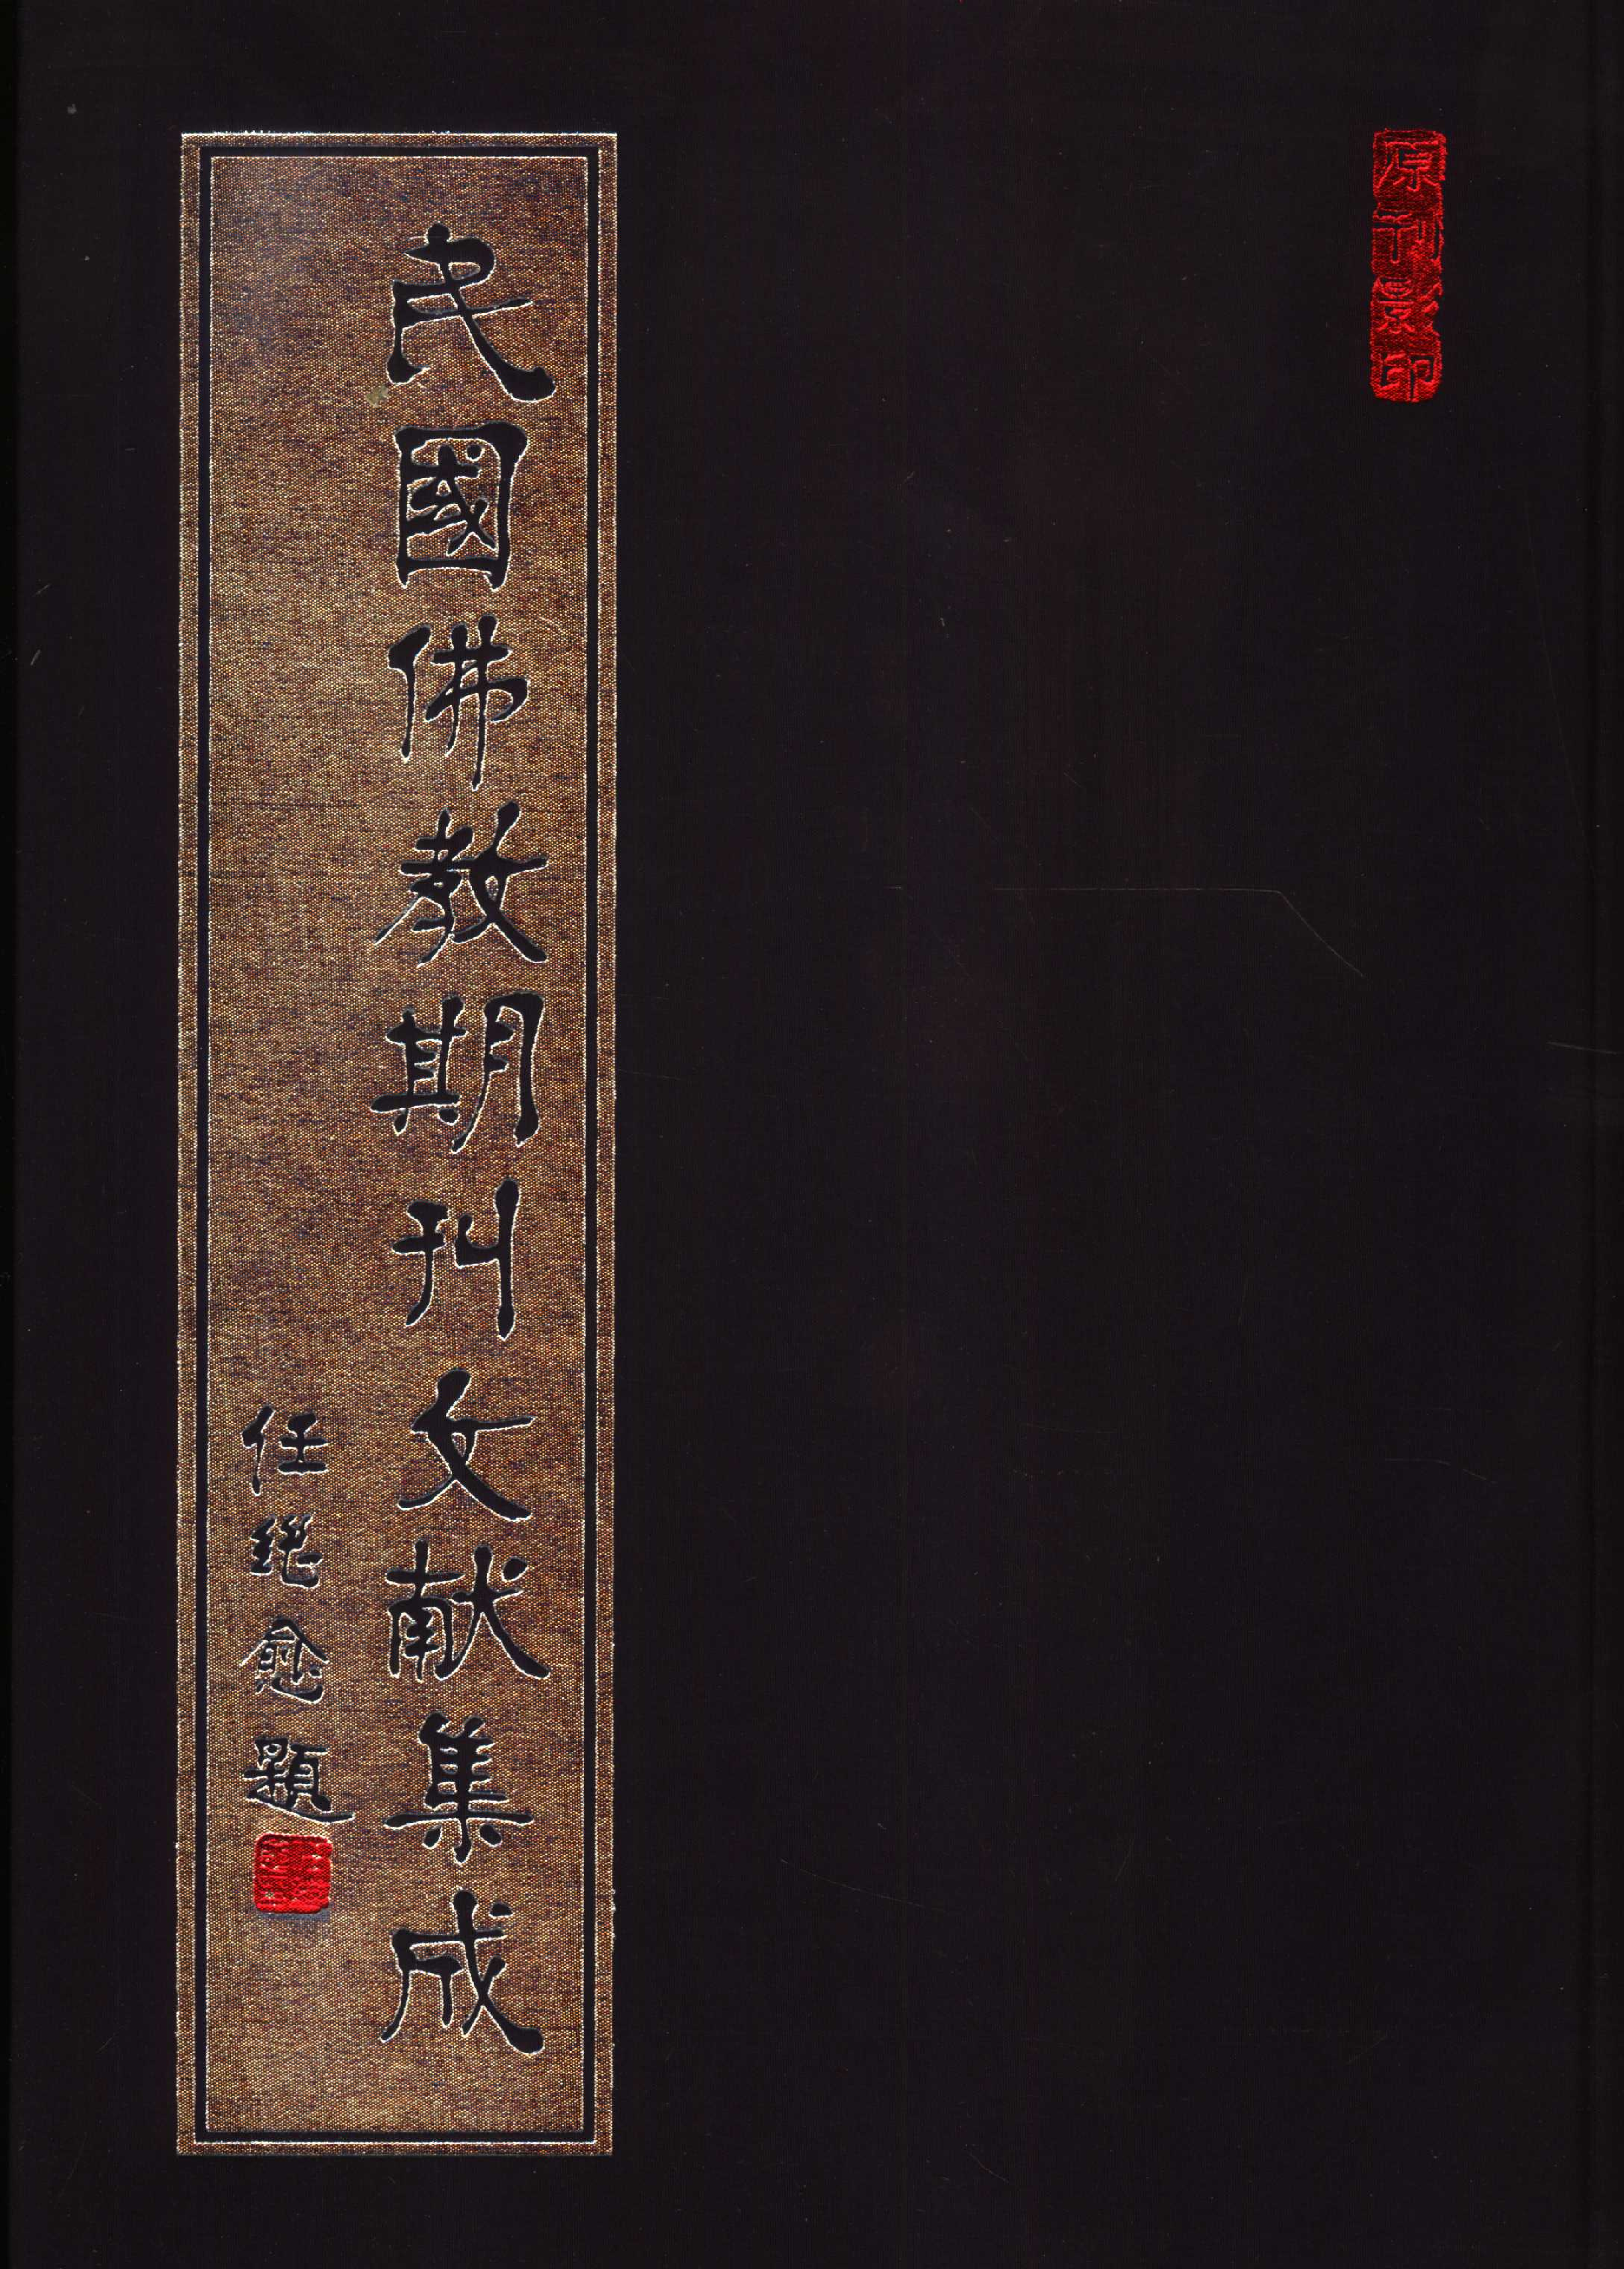 原刊影印
民國佛教期刊文献集成
任继愈題